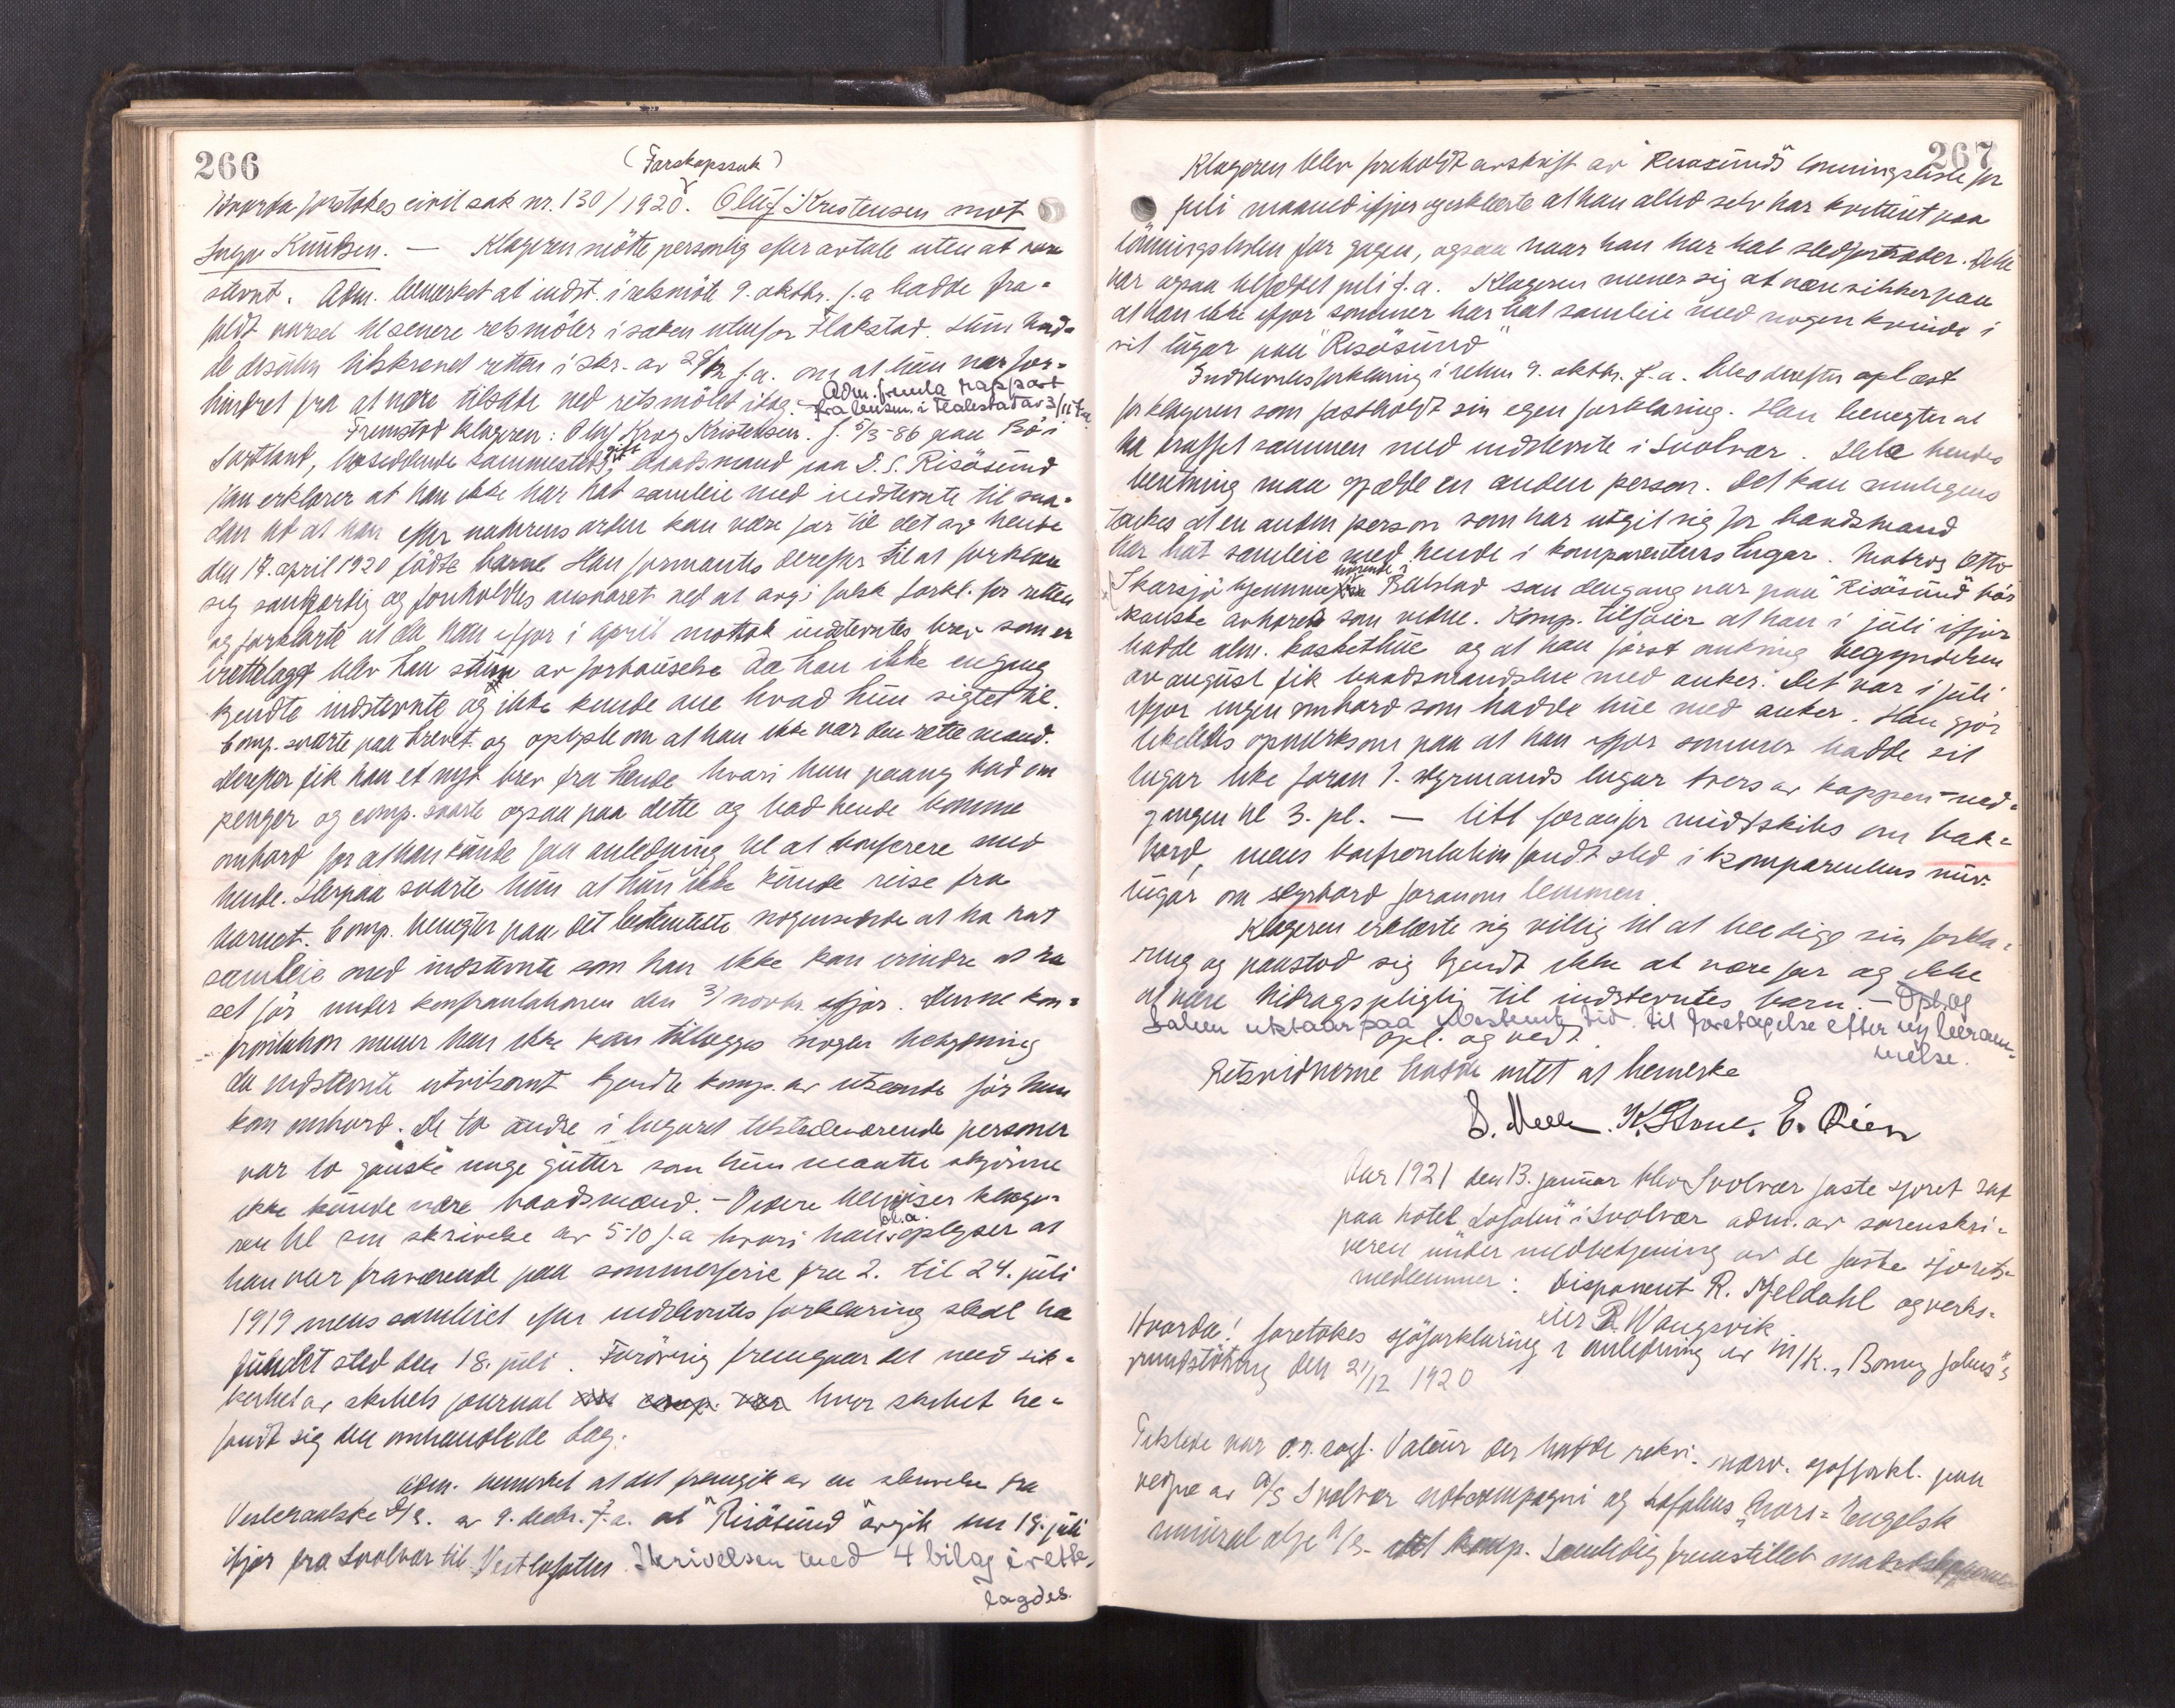 266
(Farskapssak)
Hvorda foretokes civil sak nr. 130/1920. Oluf Kristensen mot
Inga Knudsen. — Klageren mötte personlig efter avtale uten at være
stevnt. Adm. bemerket at indst. i retsmöte 9. oktbr. f.a hadde fra-
faldt varsel til senere retsmöter i saken utenfor Flakstad. Hun had-
de desuten tilskrevet retten i skr. av f.a. om at hun var for-
hindret fra at være tilstede ved retsmötet idag. Adm. fremla rapport
fra lensm. i Flakstad av 3/11 f.a.
Fremstod klageren: Oluf Krog Kristensen f. 5/3-86 paa Bö i
Sortland, bosiddende sammesteds, gift, baadsmand paa D.S. Risösund
Han erklærer at han ikke har hat samleie med indstevnte til saa-
dan tid at han efter naturens orden kan være far til det av hende
den 18. april 1920 födte barn. Han formantes derefter til at forklare
sig sanfærdig og foreholdtes ansvaret ved at avgi falsk forkl. for retten
og forklarte at da han ifjor i april mottok indstevntes brev som er
irettelagt blev han stum av forbauselse da han ikke engang
kjendte indstevnte og ikke kunde ane hvad hun sigtet til.
Comp. svarte paa brevet og oplyste om at han ikke var den rette mand.
Derefter fik han et nyt brev fra hende hvori hun paany bad om
penger og comp. svarte ogsaa paa dette og bad hende komme
ombord for at han kunde faa anledning til at konferere med
hende. Herpaa svarte hun at hun ikke kunde reise fra
barnet. Comp. benegter paa det bestemteste nogensinde at ha hat
samleie med indstevnte som han ikke kan erindre at ha
set för under konfrontationen den 3/ novbr. ifjor. Denne kon-
frontation mener han ikke kan tillægges nogen betydning
da indstevnte utvilsomt kjendte komp. av utseende för hun
kom ombord. De to andre i lugaret tilstedeværende personer
var to ganske unge gutter som hun maatte skjönne
ikke kunde være baadsmænd. - Videre henviser klage-
ren til sin skrivelse av 5/10 f.a hvori han bl.a. oplyser at
han var fraværende paa sommerferie fra 2. til 24. juli
1919 mens samleiet efter indstevntes forklaring skal ha
fundet sted den 18. juli. Forövrig fremgaar det med sik-
kerhet av skibets journal hvor skibet be-
fandt sig den omhandlede dag.
Adm. bemerket at det fremgik av en skrivelse fra
Vesteraalske D/S. av 9. decbr. f.a. at "Risösund" avgik den 18. juli
ifjor fra Svolvær til Vestlofoten. Skrivelsen med 4 bilag irette-
lagdes.
267
Klageren blev foreholdt avskrift av "Risösund"s lönningsliste for
juli maaned ifjor og erklærte at han altid selv har kvittert paa
lönningslisten for gagen, ogsaa naar han har hat stedfortræder. Dette
var ogsaa tilfældet juli f.a. Klageren mener sig at være sikker paa
at han ikke ifjor sommer har hat samleie med nogen kvinde i
sit lugar paa "Risösund"
Indstevntes forklaring i retten 9. oktbr. f.a. blev derefter oplæst
for klageren som fastholdt sin egen forklaring. Han benegter at
ha truffet sammen med indstevnte i Svolvær. Hele hendes
beretning maa gjælde en anden person. Det kan muligens
tænkes at en anden person som har utgit sig for baadsmand
har hat samleie med hende i komparentens lugar. Matros Otto
Skarsjö hjemmehörende i Ballstad som dengang var paa "Risösund" bör
kanske avhöres som vidne. Komp. tilföier at han i juli ifjor
hadde alm. kaskethue og at han först omkring begyndelsen
av august fik baadsmandshue med anker. Det var i juli
ifjor ingen ombord som hadde hue med anker. Han gjör
likeledes opmerksom paa at han ifjor sommer hadde sit
lugar like foran 1. styrmands lugar tvers av kappen - ned-
gangen til 3. pl. — litt foranfor midtskibs om bak-
bord, mens konfrontation fandt sted i komparentens nuv.
lugar om styrbord foranom lemmen.
Klageren erklærte sig villig til at beedige sin forkla-
ring og paastod sig kjendt ikke at være far og ikke
at være bidragspligtig til indstevntes barn. - Opl. og
Saken utstaar paa ubestemt tid til foretagelse efter ny beram-
melse.
opl. og vedt.
Retsvidnerne hadde intet at bemerke
E. Qien
Aar 1921 den 13. januar blev Svolvær faste sjöret sat
paa hotel "Lofoten" i Svolvær adm. av sorenskri-
veren under medbetjening av de faste sjörets-
medlemmer: Disponent R. Kjeldahl og verks-
eier R. Wangsvik
Hvorda! foretokes sjöforklaring i anledning av M/K. "Bonny Johns"s
grundstötning den 21/12 1920
Tilstede var o.r. sagf. Valeur der hadde rekv. nærv. sjöforkl. paa
vegne av A/S Svolvær notcompagni og Lofotens "Nors-Engelsk
mineral olje A/S. komp. Samtidig fremstillet